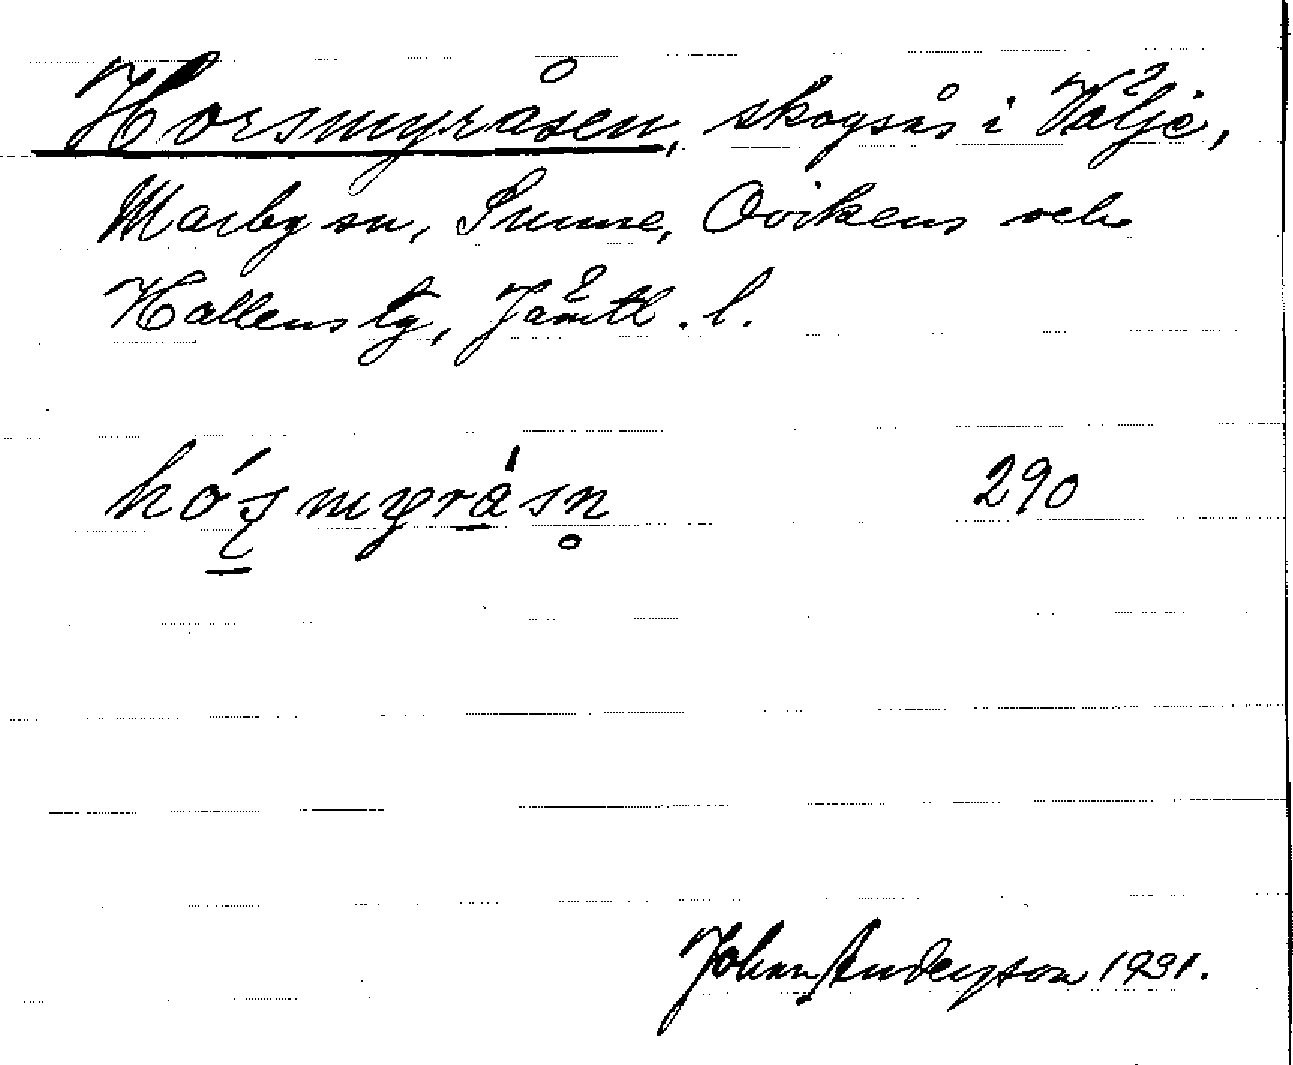 Horsmyråsen, skogsås i Välje,
Marby sn, Sunne, Ovikens och
Hallens tg, Jämtl. l.
290
Johan Anderson 1931.